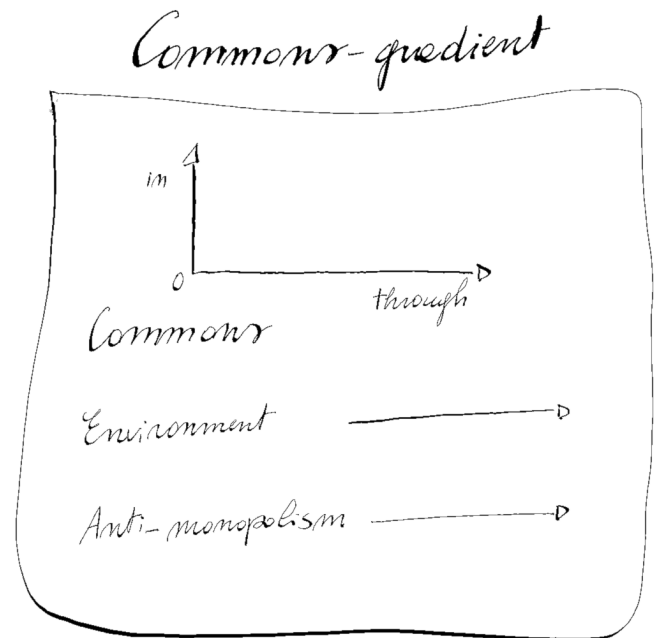 Commons-gradient
in
0
through
Commons
Environment
Anti-monopolism